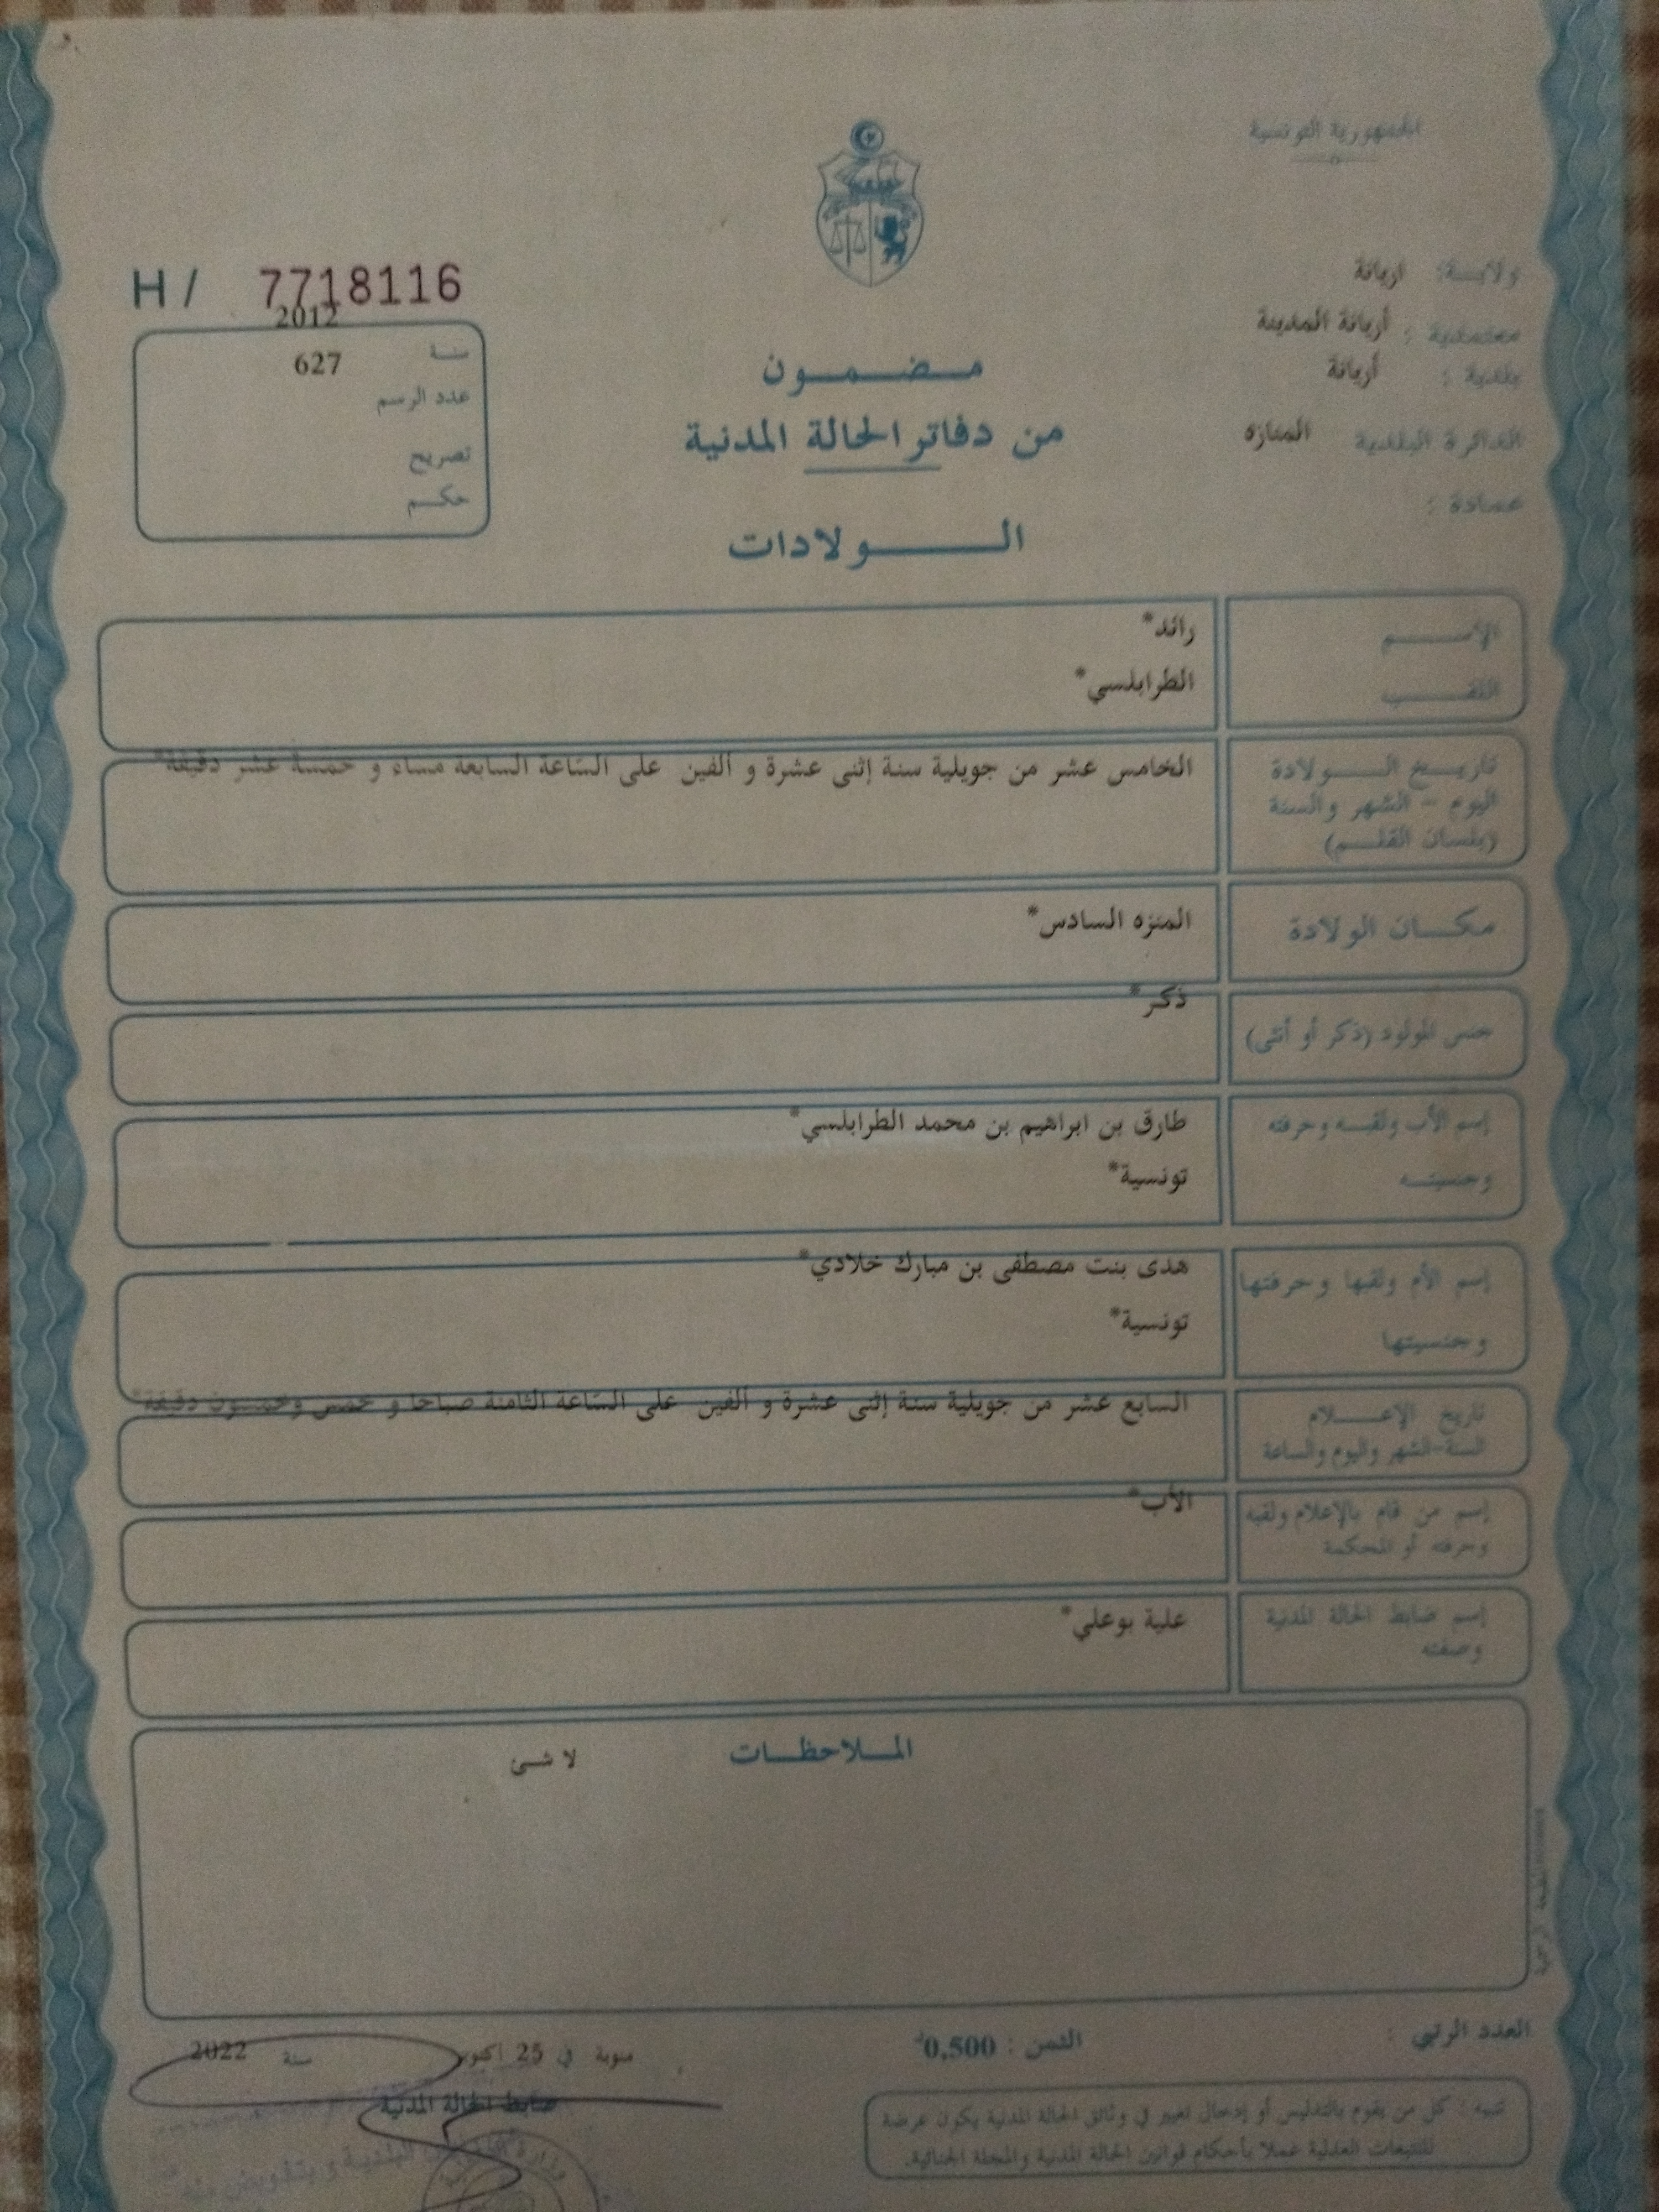 الجمهورية التونسية
H / 7718116
ولايـــة: اريانة
معتمدية : أريانة المدينة
بلدية : أريانة
الدائرة البلدية المنازه
عمادة :
2012
سنة
627
عدد الرسم
تصريح
حكم
مضمون
من دفاتر الحالة المدنية
الولادات
الإسم
رائد*
اللقب
الطرابلسي*
تاريخ الولادة
اليوم - الشهر والسنة
(بلسان القلم)
الخامس عشر من جويلية سنة إثنى عشرة و ألفين على السّاعة السابعة مساء و خمسة عشر دقيقة*
مكان الولادة
المنزه السادس*
جنس المولود (ذكر أو أنثى)
ذكر*
إسم الأب ولقبه وحرفته
وجنسيته
طارق بن ابراهيم بن محمد الطرابلسي*
تونسية*
إسم الأم ولقبها وحرفتها
وجنسيتها
هدى بنت مصطفى بن مبارك خلادي*
تونسية*
تاريخ الإعلام
السنة-الشهر واليوم والساعة
السابع عشر من جويلية سنة إثنى عشرة و ألفين على السّاعة الثامنة صباحا و خمس وخمسون دقيقة*
إسم من قام بالإعلام ولقبه
وحرفته أو المحكمة
الأب*
إسم ضابط الحالة المدنية
وصفته
علية بوعلي*
الملاحظات
لا شئ
العدد الرتبي :
الثمن : 0,500د
في 25 اكتوبر سنة 2022
ضابط الحالة المدنية
تنبيه : كل من يقوم بالتدليس أو إدخال تغيير في وثائق الحالة المدنية يكون عرضة
للتتبعات العدلية عملا بأحكام قوانين الحالة المدنية والمجلة الجنائية.